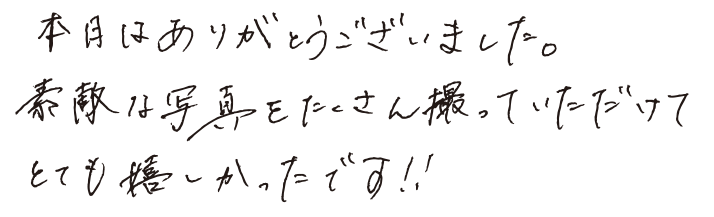 本日はありがとうございました。
素敵な写真をたくさん撮っていただけて
とても嬉しかったです!!